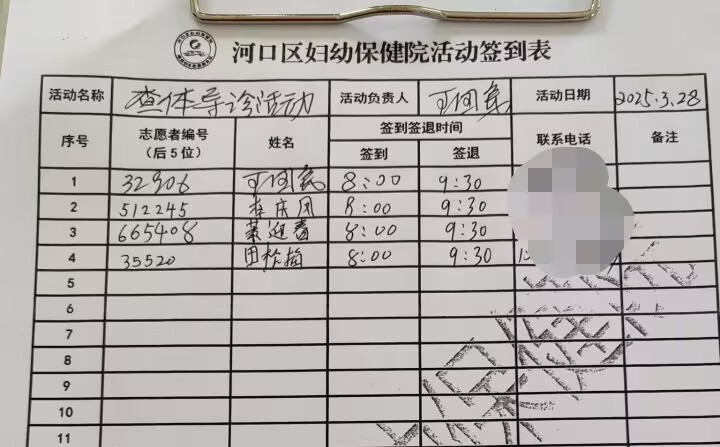 河口区妇幼保健院活动签到表
活动名称 查体导诊活动 活动负责人 活动日期 2025.3.28
序号 志愿者编号（后5位） 姓名 签到签退时间 联系电话 备注
签到 签退
1 32906 8:00 9:30
2 512245 8:00 9:30
3 665408 8:00 9:30
4 35520 8:00 9:30
5
6
7
8
9
10
11